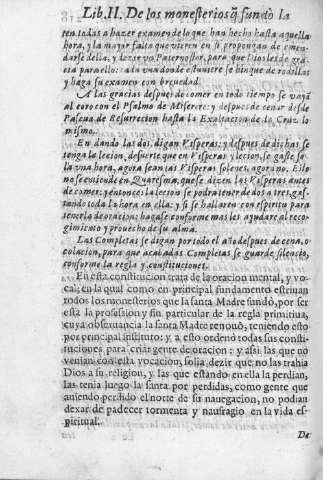 Lib. II. De los monesterios q̃ fundo la
ten todas a hazer examen de lo que han hecho hasta aquella
hora, y la mayor falta que vieren en si propongan de emen-
darse della, y dezir vn Paternoster, para que Dios les de gra-
cia para ello: cada vna donde estuuiere se hinque de rodillas
y haga su examen con breuedad.
A las gracias despues de comer en todo tiempo se vayã
al coro con el Psalmo de Miserere: y despues de cenar desde
Pascua de Resurrecion hasta la Exaltacion de la Cruz lo
mismo.
En dando las dos, digan Visperas: y despues de dichas se
tenga la lecion, de suerte que en Visperas y lecion, se gaste so-
la vna hora, agora sean las Visperas solenes, agora no. Esto
no se entiende en Quaresma, que se dizen las Visperas antes
de comer: y entonces la lecion se podra tener de dos a tres gas-
tando toda la hora en ella: y si se hallaren con espiritu para
tenerla de oracion: hagase conforme mas les ayudare al reco-
gimiento y prouecho de su alma.
Las Completas se digan por todo el año despues de cena, o
colacion, para que acabadas Completas se guarde silencio,
conforme la regla y constituciones.
En esta constitucion trata de la oracion mental, y vo-
cal; en la qual como en principal fundamento estriuan
todos los monesterios que la santa Madre fundò, por ser
esta la profession y fin particular de la regla primitiua,
cuya obseruancia la santa Madre renouò, teniendo esto
por principal instituto: y a esto ordenò todas sus consti-
tuciones para criar gente de oracion: y assi las que no
venian con esta vocacion, solia dezir que no las trahia
Dios a su religion, y las que estando en ella la perdian,
las tenia luego la santa por perdidas, como gente que
auiendo perdido el norte de su nauegacion, no podian
dexar de padecer tormenta y naufragio en la vida es-
piritual.
De